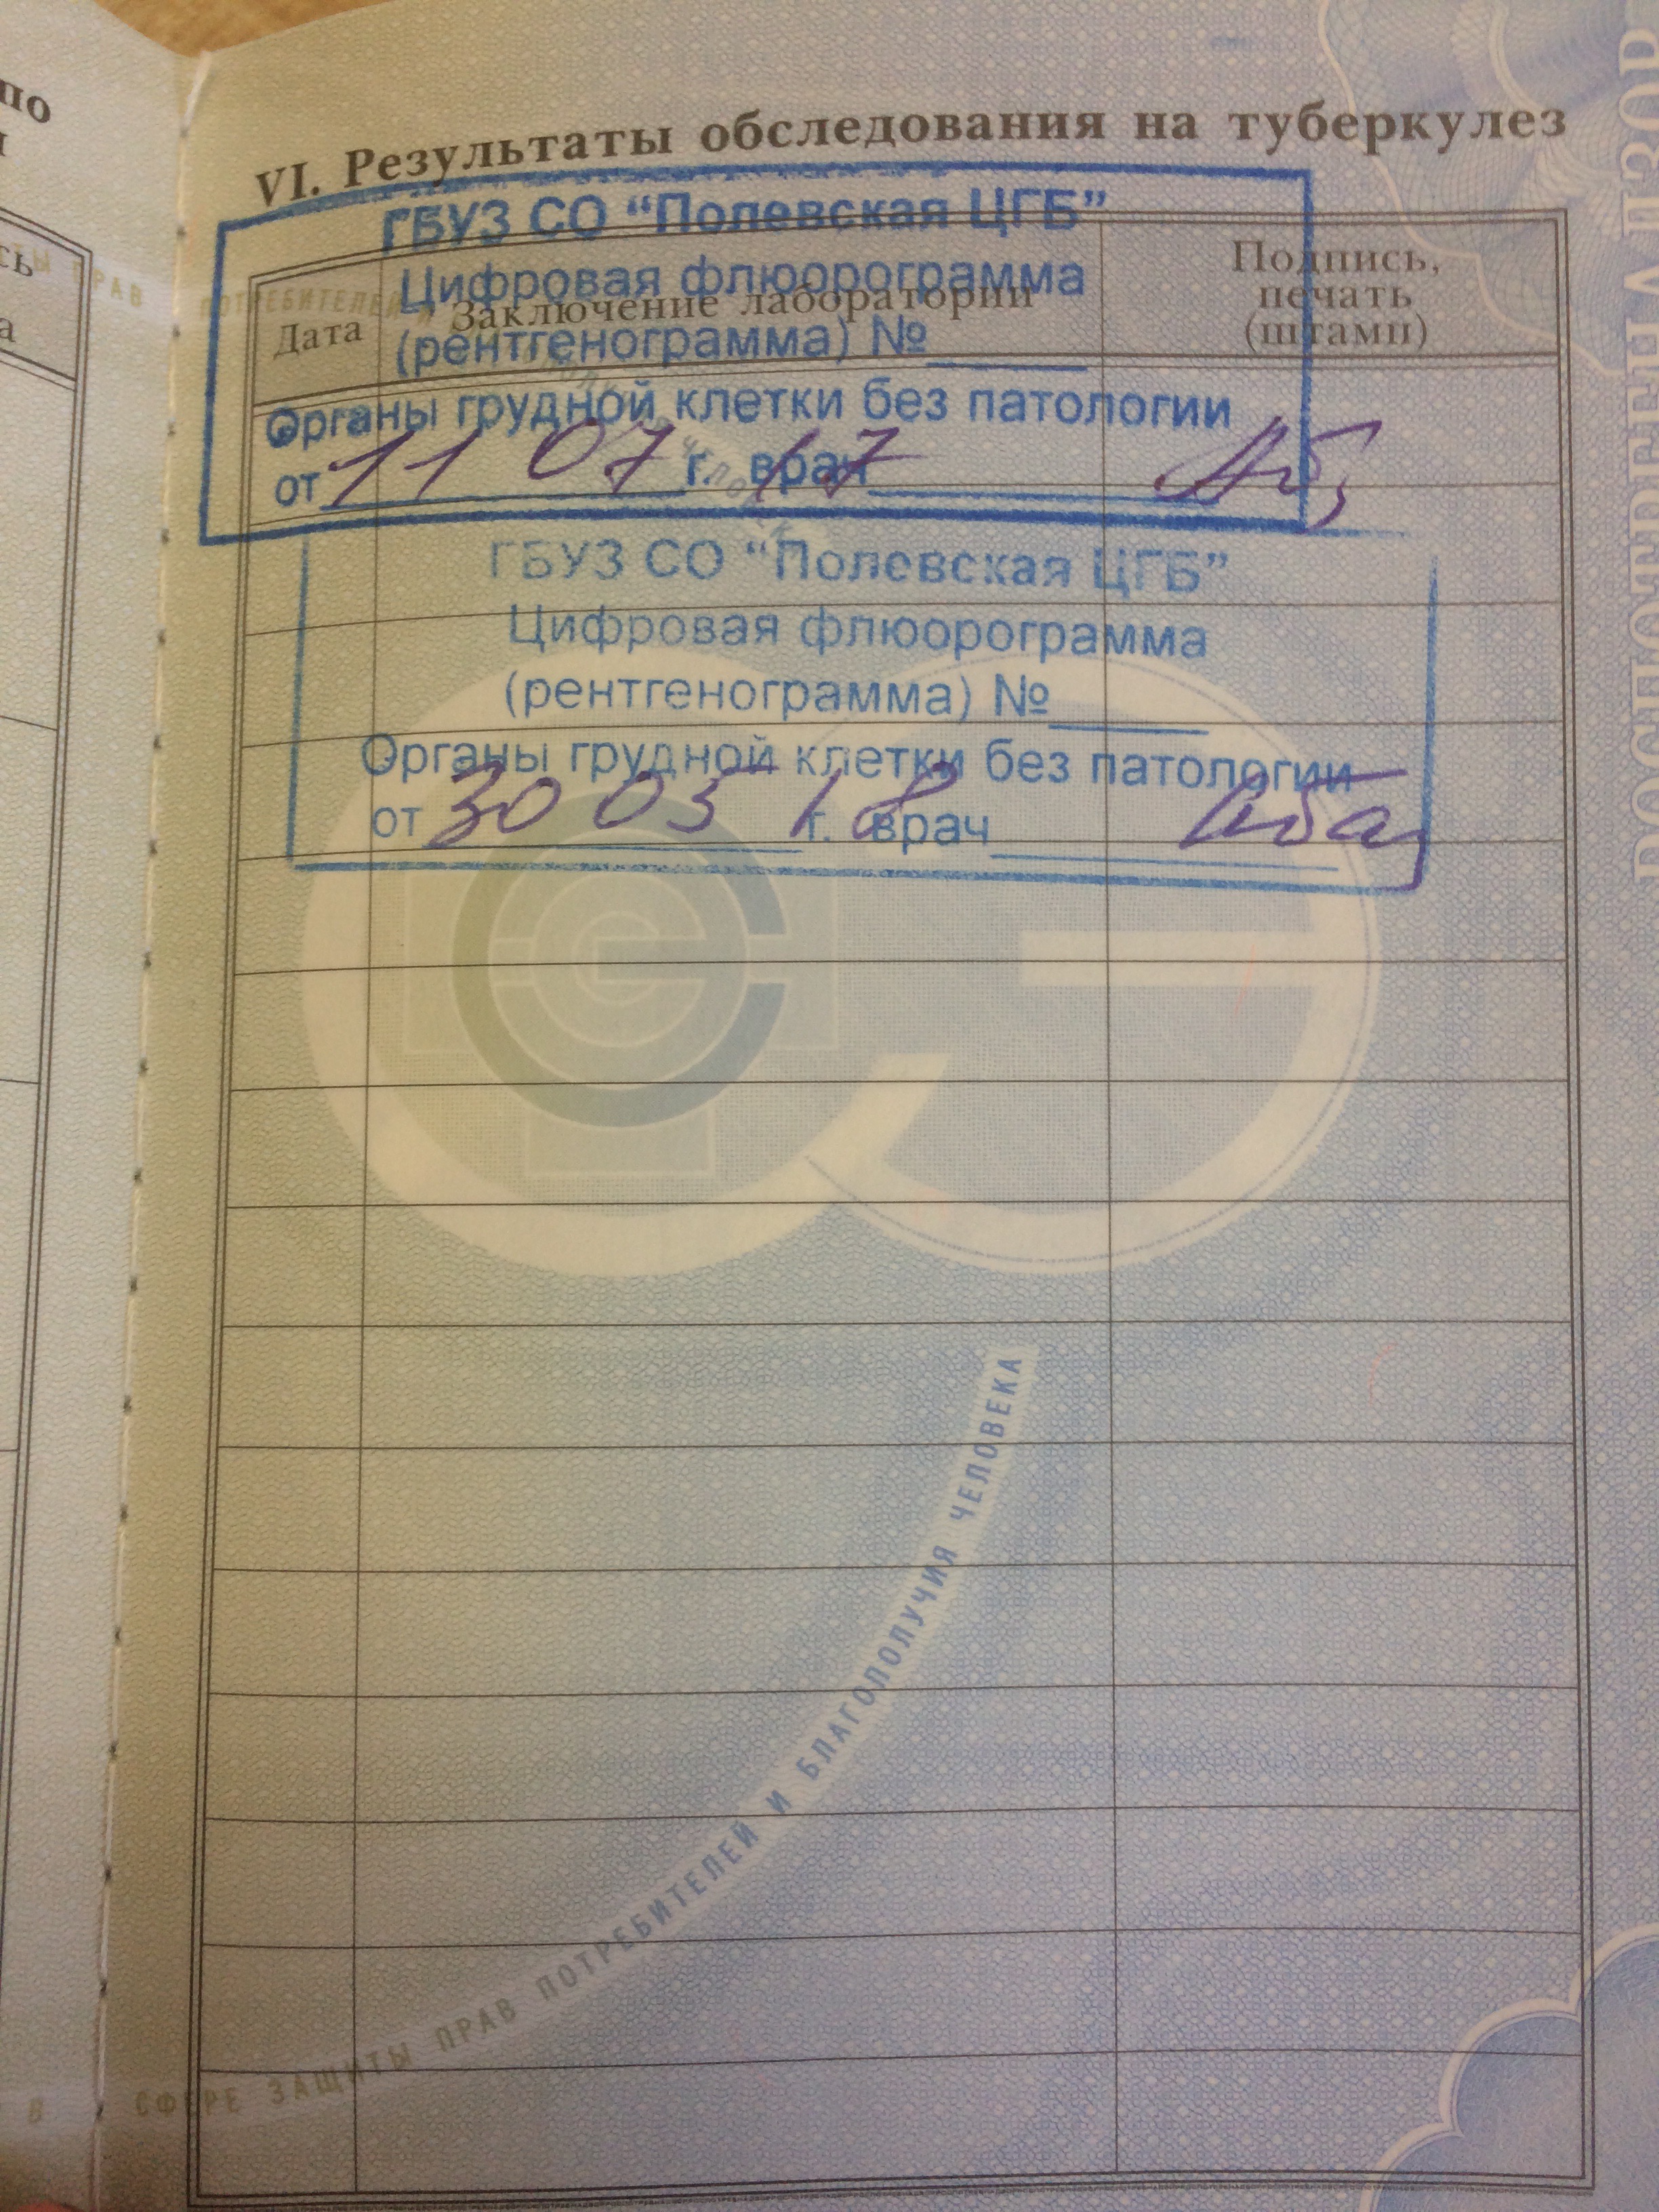 по
VI. Результаты обследования на туберкулез
ГБУЗ СО “Полевская ЦГБ”
Цифровая флюорограмма
(рентгенограмма) №
Дата
Заключение лаборатории
Подпись,
печать
(штамп)
Органы грудной клетки без патологии
от 11 07 17 г. врач
ГБУЗ СО “Полевская ЦГБ”
Цифровая флюорограмма
(рентгенограмма) №
Органы грудной клетки без патологии
от 30 05 18 г. врач
В СФЕРЕ ЗАЩИТЫ ПРАВ ПОТРЕБИТЕЛЕЙ И БЛАГОПОЛУЧИЯ ЧЕЛОВЕКА
РОСПОТРЕБНАДЗОР